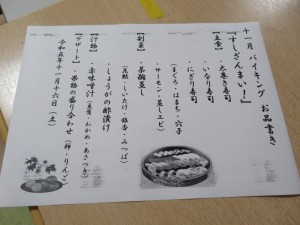 十一月 バイキング お品書き
『すしざんまい!』
【主食】
・太巻き寿司
・いなり寿司
・にぎり寿司
(まぐろ・はまち・穴子
・サーモン・蒸しエビ)
【副菜】
・茶碗蒸し
(又鶏・しいたけ・銀杏・みつば)
・しょうがの酢漬け
【汁物】
・赤味噌汁(豆腐・わかめ・あさつき)
【デザート】
・果物の盛り合わせ(柿・りんご)
令和五年十一月十六日(土)